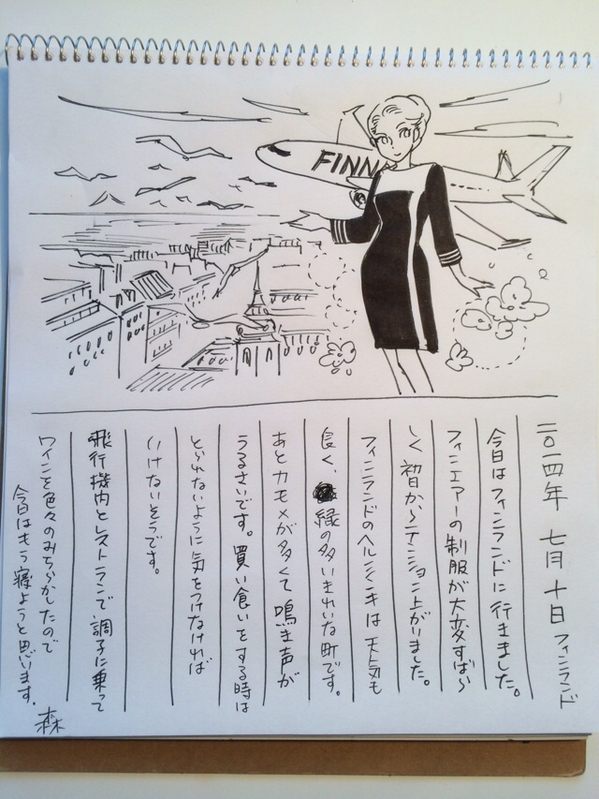 FINN
二〇一四年 七月 十日 フィンランド
今日はフィンランドに行きました。
フィンエアーの制服が大変すばら
しく初日からテンション上がりました。
フィンランドのヘルシンキは天気も
良く、緑の多いきれいな町です。
あとカモメが多くて鳴き声が
うるさいです。買い食いをする時は
とられないように気をつけなければ
いけないそうです。
飛行機内とレストランで調子に乗って
ワインを色々のみちらかしたので
今日はもう寝ようと思います。
森